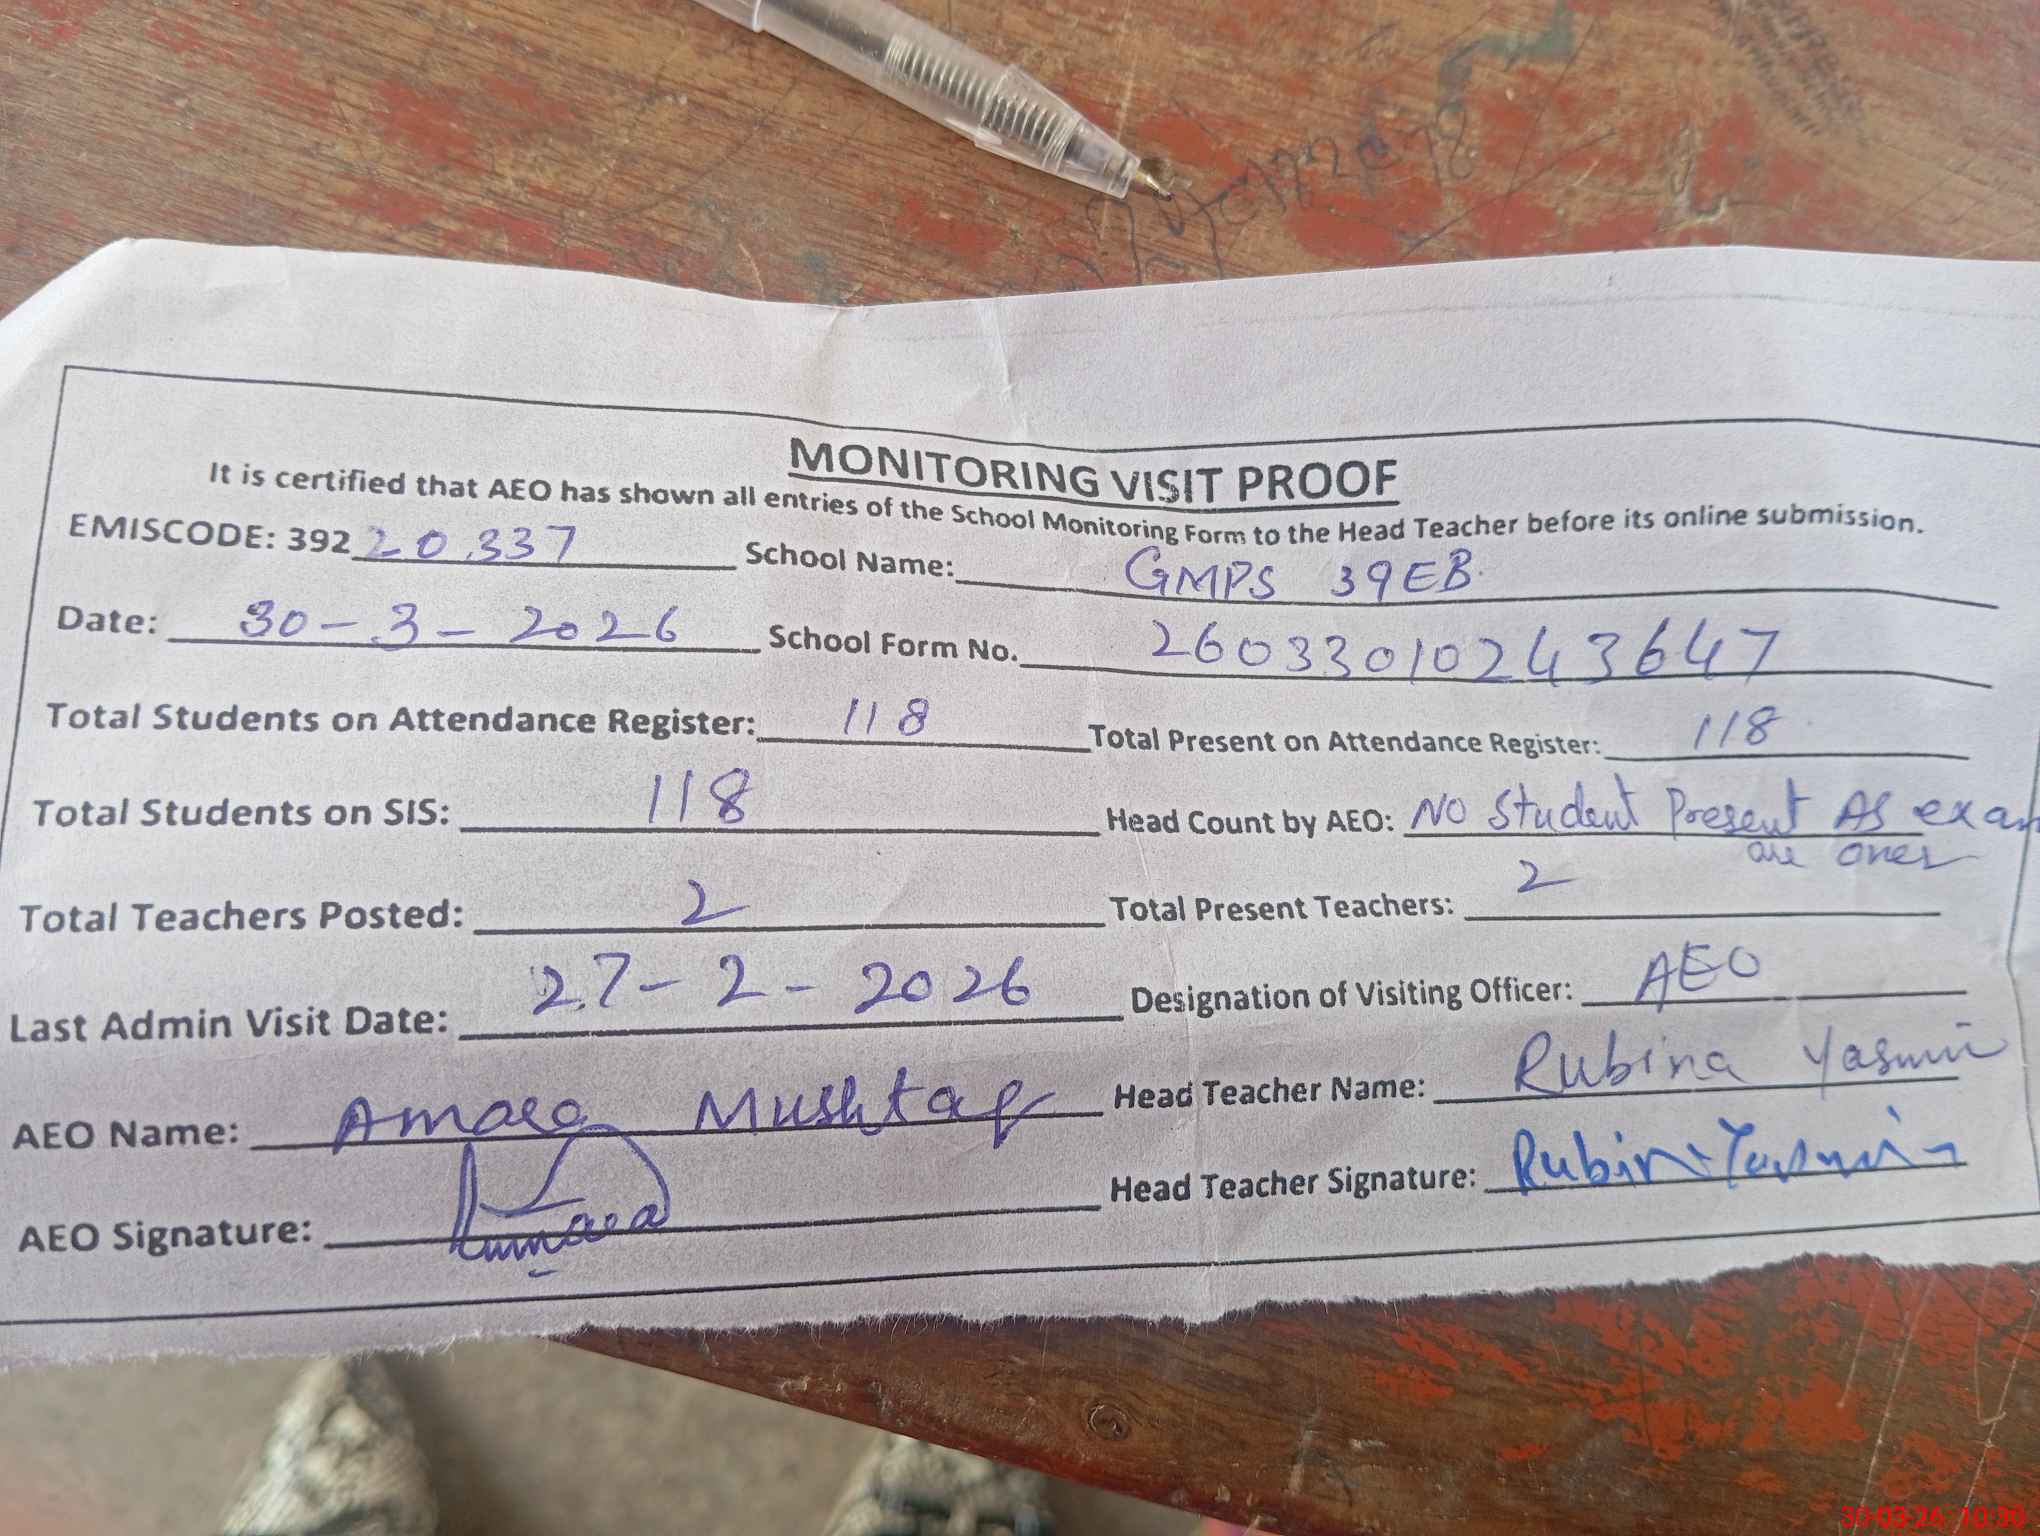 MONITORING VISIT PROOF
It is certified that AEO has shown all entries of the School Monitoring Form to the Head Teacher before its online submission.
EMISCODE: 392 20337 School Name: GMPS 39EB
Date: 30-3-2026 School Form No. 26033010243647
Total Students on Attendance Register: 118 Total Present on Attendance Register: 118
Total Students on SIS: 118 Head Count by AEO: No Student Present As exam
are over
Total Teachers Posted: 2 Total Present Teachers: 2
Last Admin Visit Date: 27-2-2026 Designation of Visiting Officer: AEO
AEO Name: Amara Mushtaq Head Teacher Name: Rubina Yasmin
AEO Signature: Head Teacher Signature: Rubina Yasmin
30-03-26 10:30